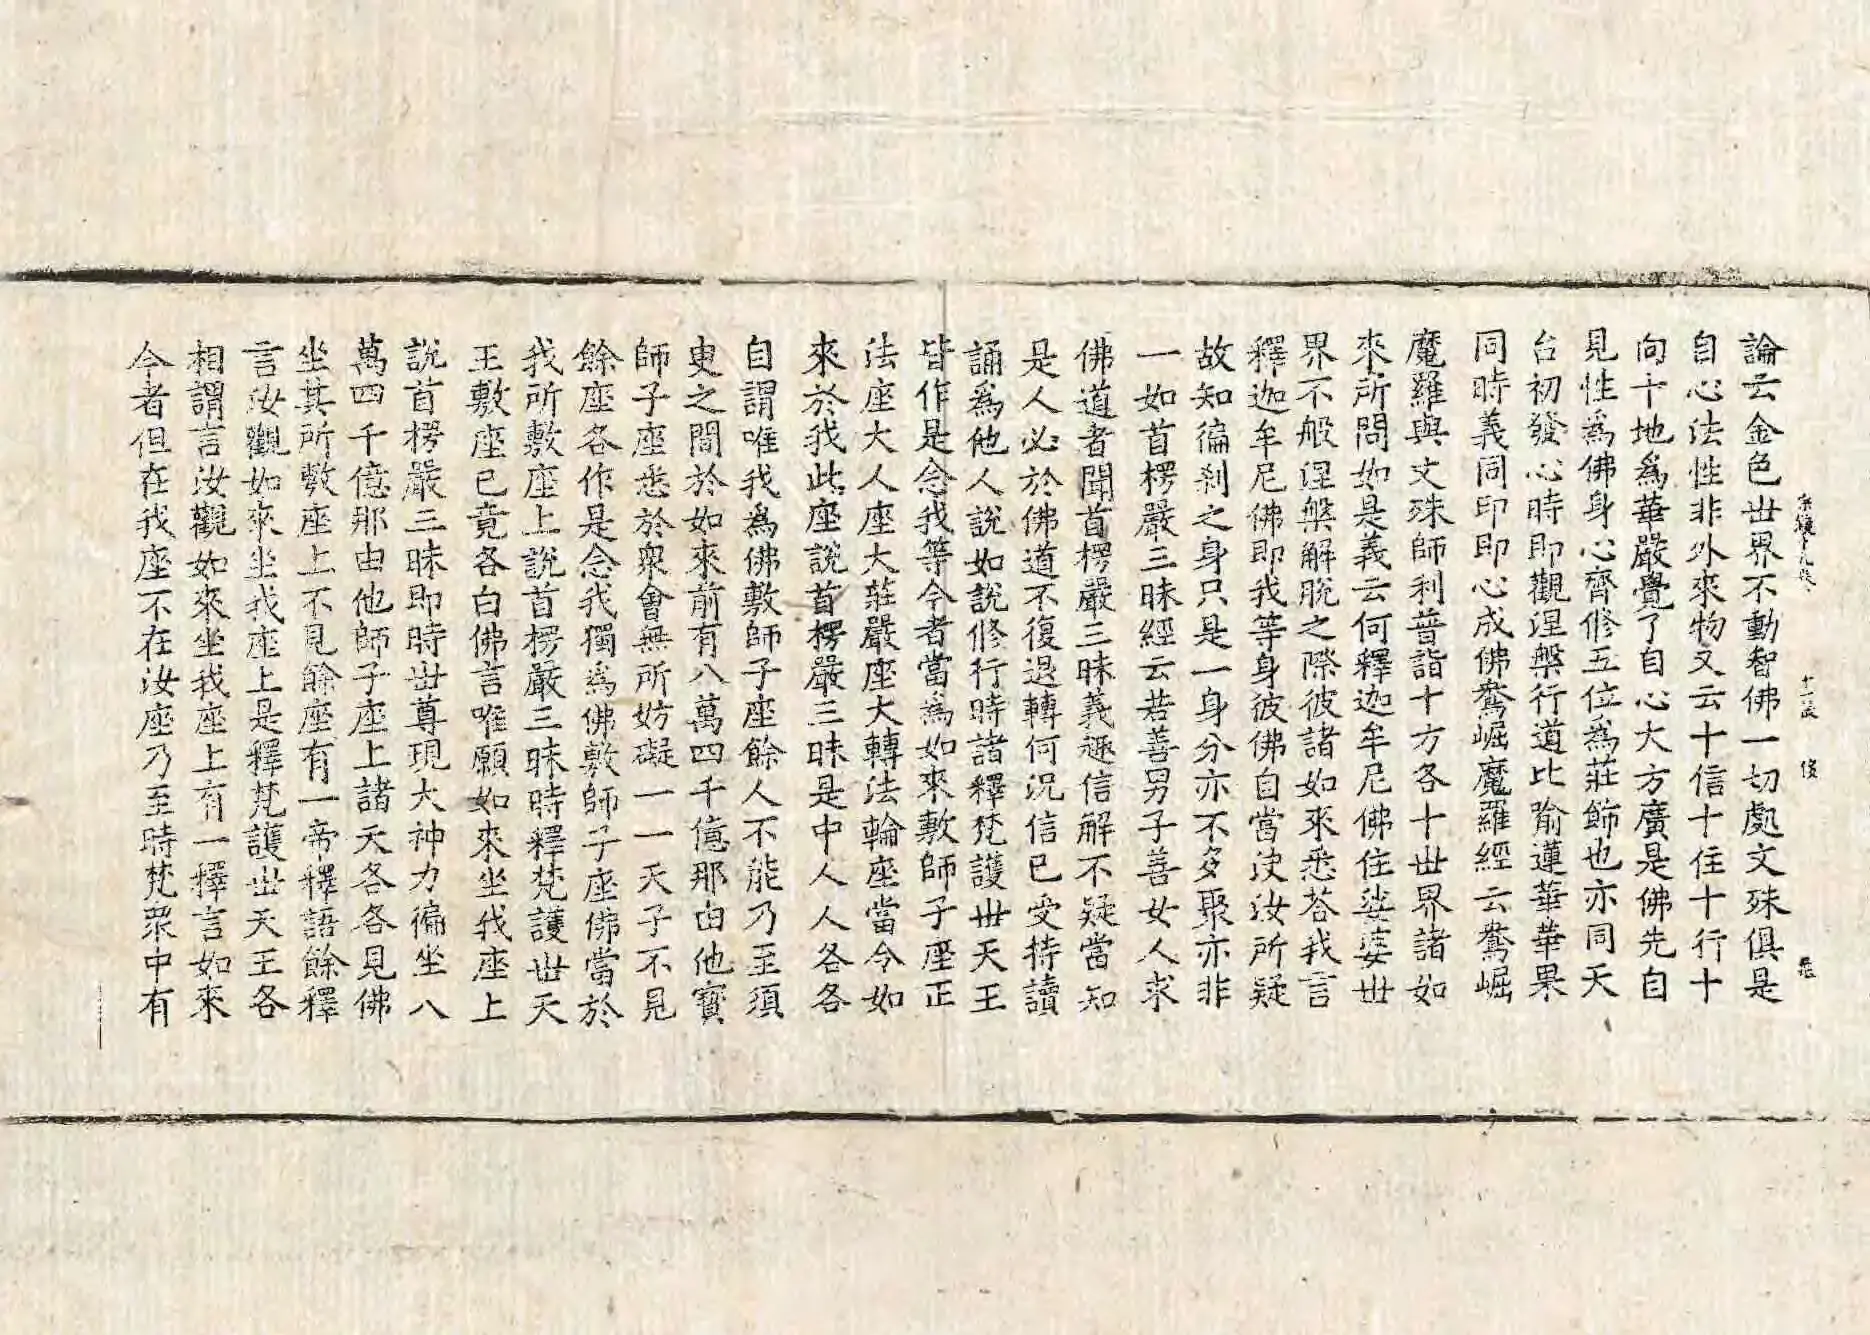 論云金色世界不動智佛一切處文殊俱是
自心法性非外來物又云十信十住十行十
向十地爲華嚴覺了自心大方廣是佛先自
見性爲佛身心齊修五位爲莊飾也亦同天
台初發心時即觀涅槃行道比喻蓮華華果
同時義同印即心成佛鴦崛魔羅經云鴦崛
魔羅與文殊師利普詣十方各十世界諸如
來所問如是義云何釋迦牟尼佛住娑婆世
界不般涅槃解脫之際彼諸如來悉荅我言
釋迦牟尼佛即我等身彼佛自當決汝所疑
故知徧刹之身只是一身分亦不多聚亦非
一如首楞嚴三昧經云若善男子善女人求
佛道者聞首楞嚴三昧義趣信解不疑當知
是人必於佛道不復退轉何況信已受持讀
誦爲他人說如說修行時諸釋梵護世天王
皆作是念我等今者當爲如來敷師子座正
法座大人座大莊嚴座大轉法輪座當令如
來於我此座說首楞嚴三昧是中人人各各
自謂唯我爲佛敷師子座餘人不能乃至須
臾之間於如來前有八萬四千億那由他寶
師子座悉於衆會無所妨礙一一天子不見
餘座各作是念我獨爲佛敷師子座佛當於
我所敷座上說首楞嚴三昧時釋梵護世天
王敷座已竟各白佛言唯願如來坐我座上
說首楞嚴三昧即時世尊現大神力徧坐八
萬四千億那由他師子座上諸天各各見佛
坐其所敷座上不見餘座有一帝釋語餘釋
言汝觀如來坐我座上是釋梵護世天王各
相謂言汝觀如來坐我座上有一釋言如來
今者但在我座不在汝座乃至時梵衆中有